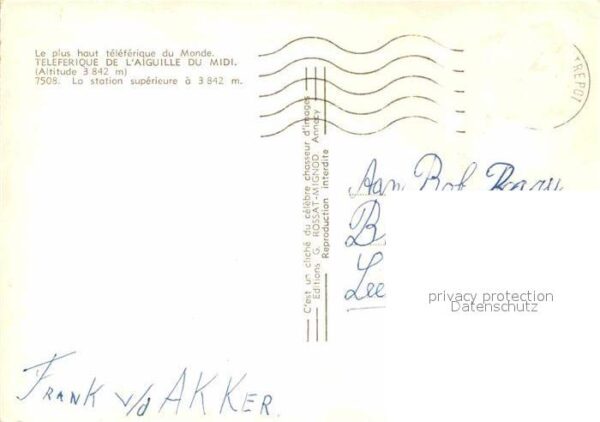 Le plus haut téléférique du Monde.
TELEFERIQUE DE L'AIGUILLE DU MIDI.
(Altitude 3 842 m)
7508. La station supérieure à 3 842 m.
C'est un cliché du célèbre chasseur d'images
Editions G. ROSSAT-MIGNOD, Annecy
Reproduction interdite
Aan Bob
B
Lee
privacy protection
Datenschutz
FRANK v/d AKKER.